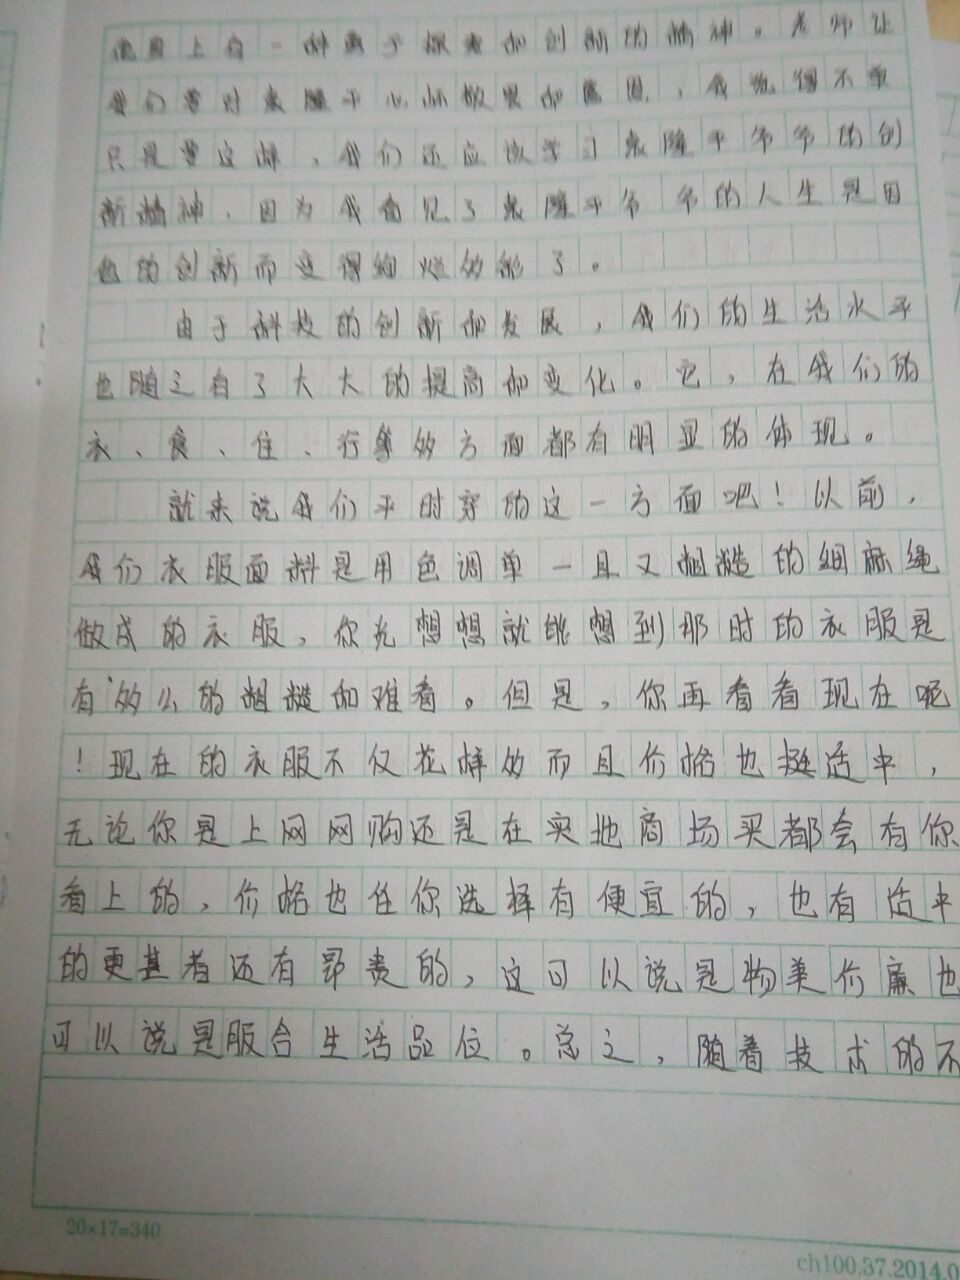 他身上有一种勇于探索和创新的精神。老师让
我们要对袁隆平心怀敬畏和感恩，我觉得不单
只是要这样，我们还应该学习袁隆平爷爷的创
新精神，因为我看见了袁隆平爷爷的人生是因
他的创新而变得绚烂多彩了。
由于科技的创新和发展，我们的生活水平
也随之有了大大的提高和变化。它，在我们的
衣、食、住、行等多方面都有明显的体现。
就来说我们平时穿的这一方面吧！以前，
我们衣服面料是用色调单一且又粗糙的细麻绳
做成的衣服，你光想想就能想到那时的衣服是
有多么的粗糙和难看。但是，你再看看现在呢
！现在的衣服不仅花样多而且价格也挺适中，
无论你是上网网购还是在实地商场买都会有你
看上的，价格也任你选择有便宜的，也有适中
的更甚者还有昂贵的，这可以说是物美价廉也
可以说是服合生活品位。总之，随着技术的不
20×17=340
ch100.37.2014.0